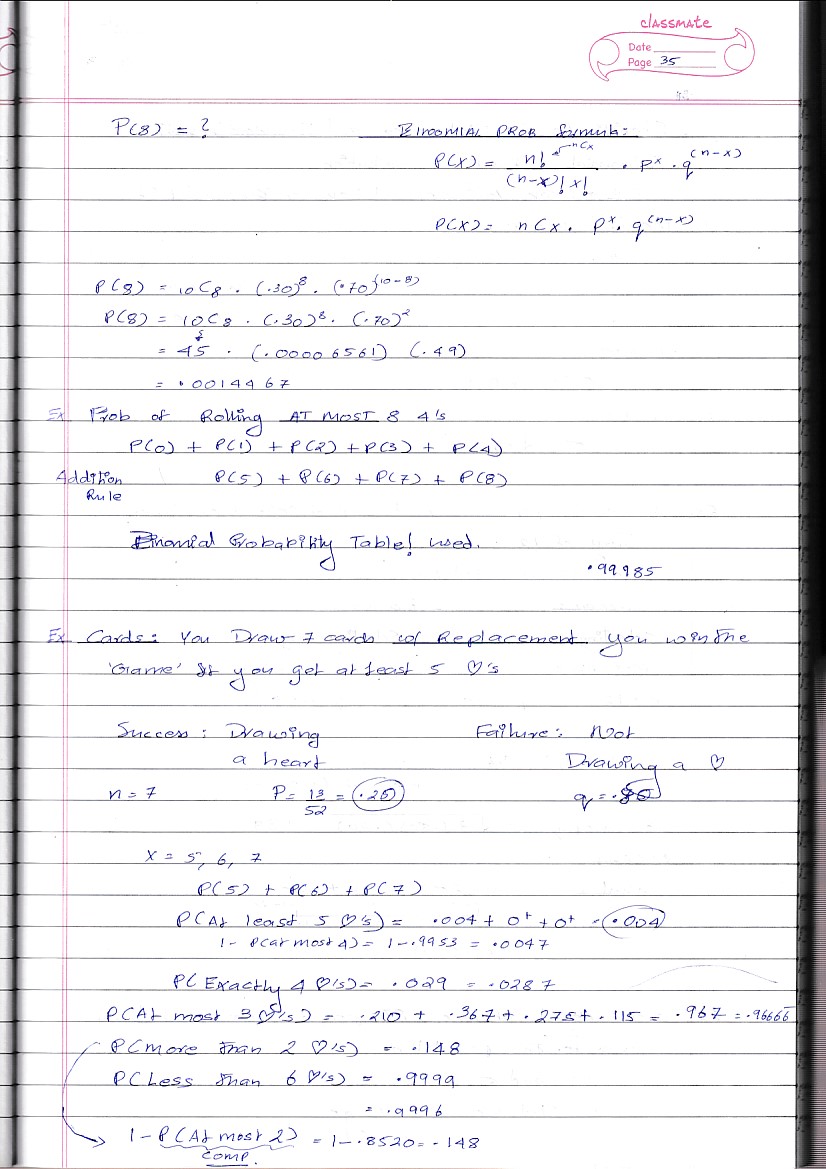 classmate
Date
Page 35
P(8) = ?
BINOMIAL PROB formula:
P(X) = n! / (n-x)! x! · p^x · q^(n-x)
nCx
P(X) = nCx · p^x · q^(n-x)
P(8) = 10C8 · (.30)^8 · (.70)^(10-8)
P(8) = 10C8 · (.30)^8 · (.70)^2
= 45 · (.00006561) (.49)
= .0014467
Ex Prob of Rolling AT MOST 8 4's
P(0) + P(1) + P(2) + P(3) + P(4)
Addition Rule
P(5) + P(6) + P(7) + P(8)
Binomial Probability Table! used.
.99985
Ex Cards: You Draw 7 cards w/ Replacement you win the
'Game' If you get at least 5 ♡'s
Success: Drawing
a heart
Failure: Not
Drawing a ♡
n = 7
P = 13/52 = .25
q =
X = 5, 6, 7
P(5) + P(6) + P(7)
P(At least 5 ♡'s) = .004 + 0⁺ + 0⁺ = .004
1 - P(at most 4) = 1 - .9953 = .0047
P(Exactly 4 ♡'s) = .029 = .0287
P(At most 3 ♡'s) = .210 + .367 + .275 + .115 = .967 = .96666
P(more than 2 ♡'s) = .148
P(Less than 6 ♡'s) = .9999
= .9996
1 - P(At most 2) = 1 - .8520 = .148
comp.